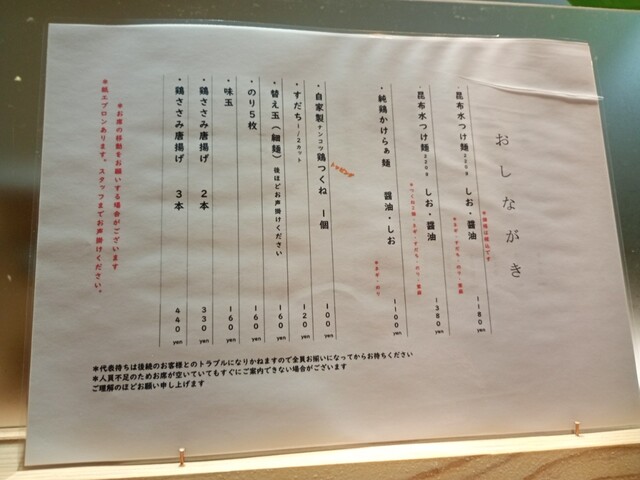 おしながき
*価格は税込です
・昆布水つけ麺220g しお・醤油 1180yen
*ネギ・すだち・のり・青菜
・昆布水つけ麺220g しお・醤油 1380yen
・純鶏かけらぁ麺 醤油・しお 1100yen
*ネギ・のり
トッピング
・自家製ナンコツ鶏つくね 1個 100yen
・すだち1/2カット 120yen
・替え玉(細麺) 後ほどお声掛けください 160yen
・のり5枚 160yen
・味玉 160yen
・鶏ささみ唐揚げ 2本 330yen
・鶏ささみ唐揚げ 3本 440yen
*お席の移動をお願いする場合がございます
*紙エプロンあります。スタッフまでお声掛けください。
*代表待ちは後続のお客様とのトラブルになりかねますので全員お揃いになってからお待ちください
*人員不足のためお席が空いていてもすぐにご案内できない場合がございます
ご理解のほどお願い申し上げます